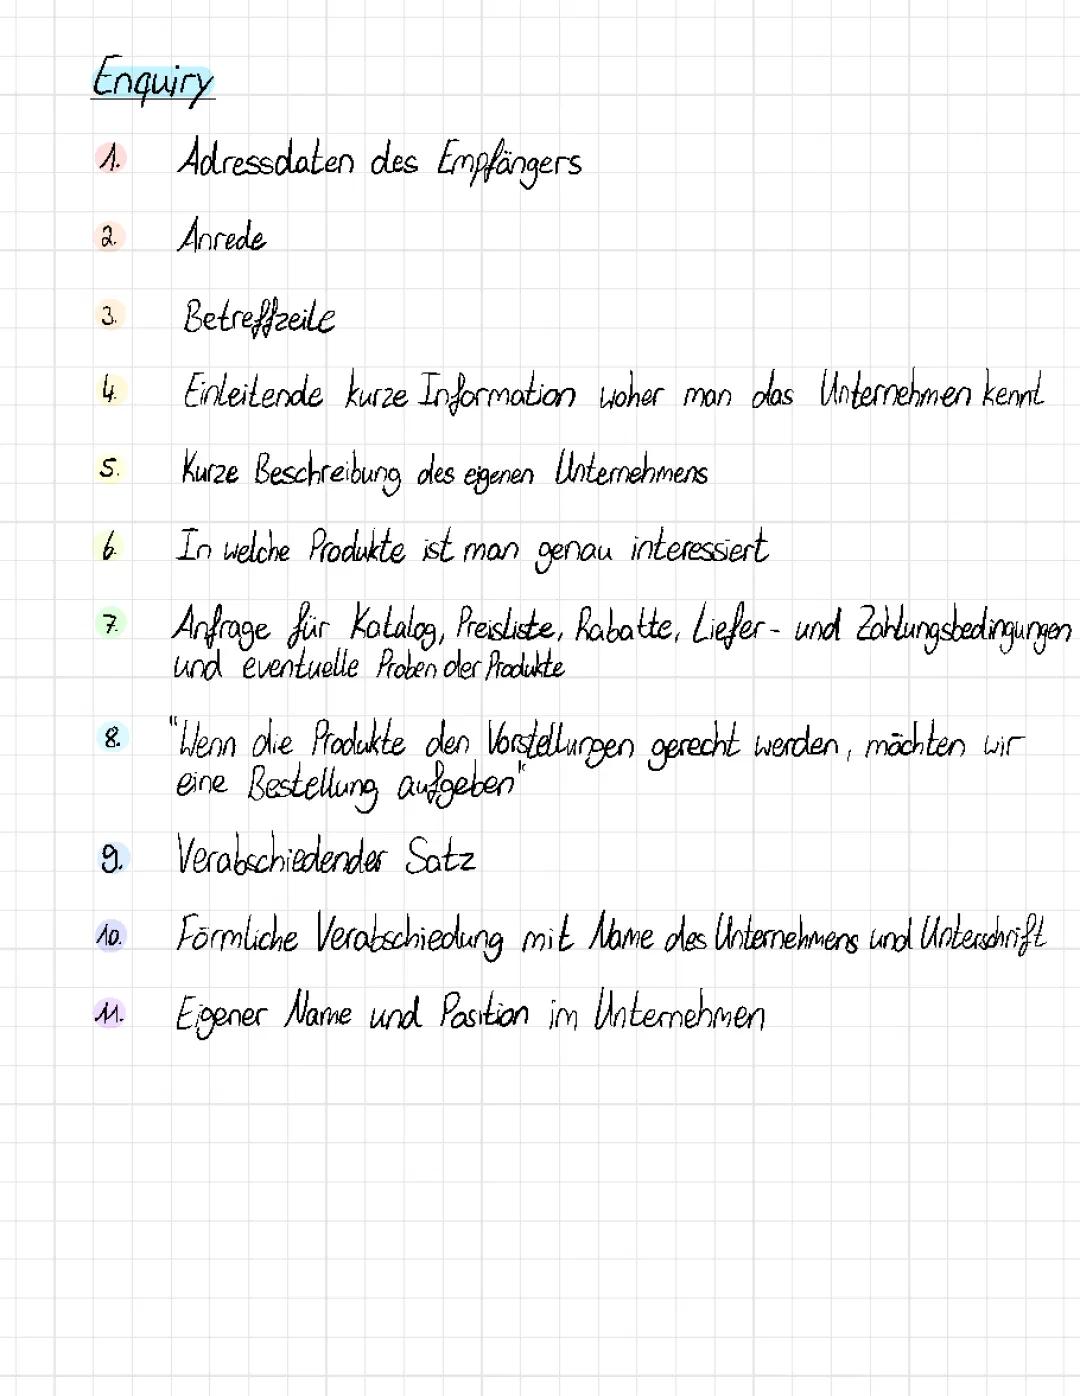 Enquiry
1. Adressdaten des Empfängers
2. Anrede
3. Betreffzeile
4. Einleitende kurze Information woher man das Unternehmen kennt
5. Kurze Beschreibung des eigenen Unternehmens
6. In welche Produkte ist man genau interessiert
7. Anfrage für Katalog, Preisliste, Rabatte, Liefer- und Zahlungsbedingungen
und eventuelle Proben der Produkte
8. "Wenn die Produkte den Vorstellungen gerecht werden, möchten wir
eine Bestellung aufgeben"
9. Verabschiedender Satz
10. Förmliche Verabschiedung mit Name des Unternehmens und Unterschrift
11. Eigener Name und Position im Unternehmen